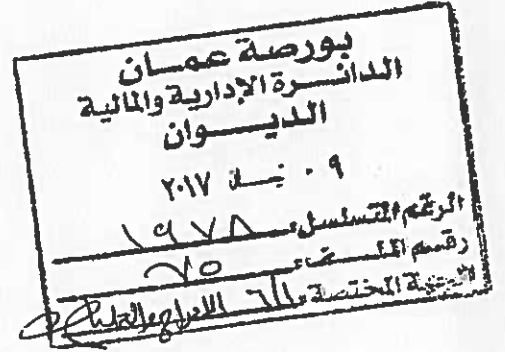 بورصة عمان
الدائرة الإدارية والمالية
الديوان
٠٩ نيسان ٢٠١٧
الرقم المتسلسل: ١٩٧٨
رقم الملف:
الجهة المختصة: